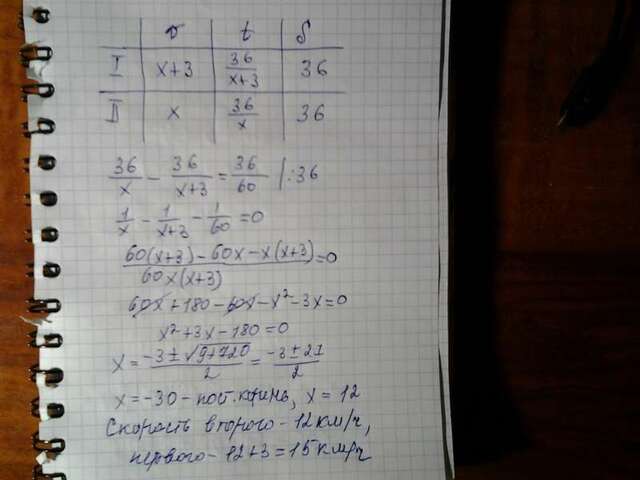 v t S
I x+3 36/(x+3) 36
II x 36/x 36
36/x - 36/(x+3) = 36/60 | :36
1/x - 1/(x+3) - 1/60 = 0
(60(x+3) - 60x - x(x+3))/(60x(x+3)) = 0
60x + 180 - 60x - x² - 3x = 0
x² + 3x - 180 = 0
x = (-3 ± √(9+720))/2 = (-3 ± 27)/2
x = -30 - пост. корень, x = 12
Скорость второго - 12 км/ч,
первого - 12+3 = 15 км/ч